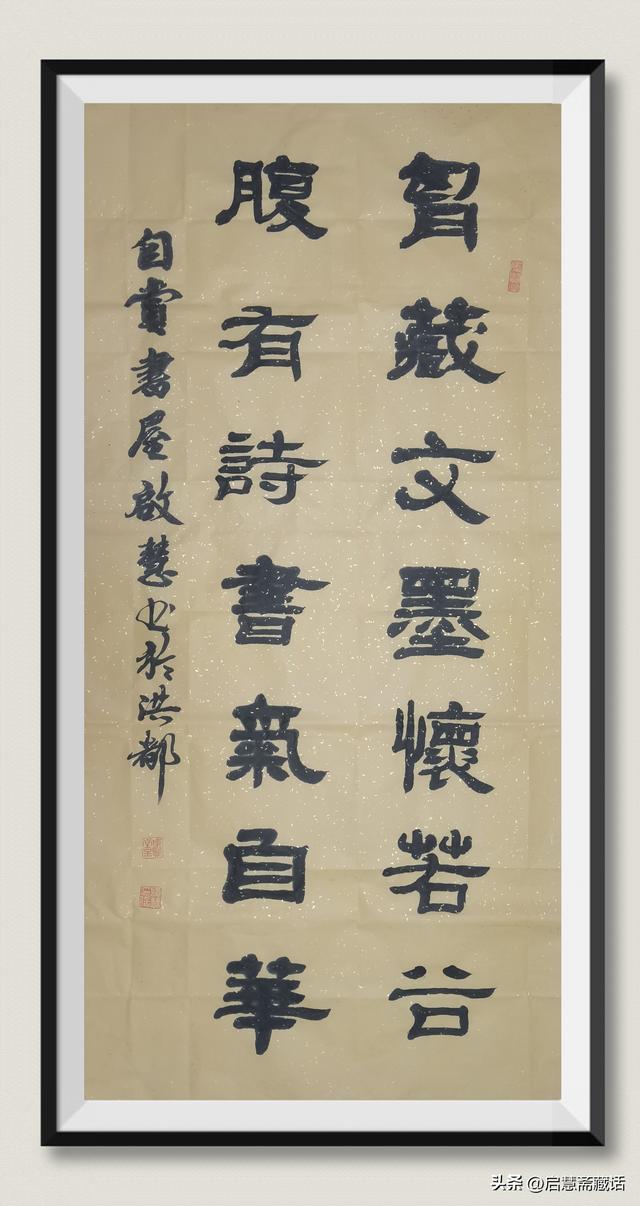 胷藏文墨懷若谷
腹有詩書氣自華
自賞書屋啟慧书於洪都
头条 @启慧斋藏话